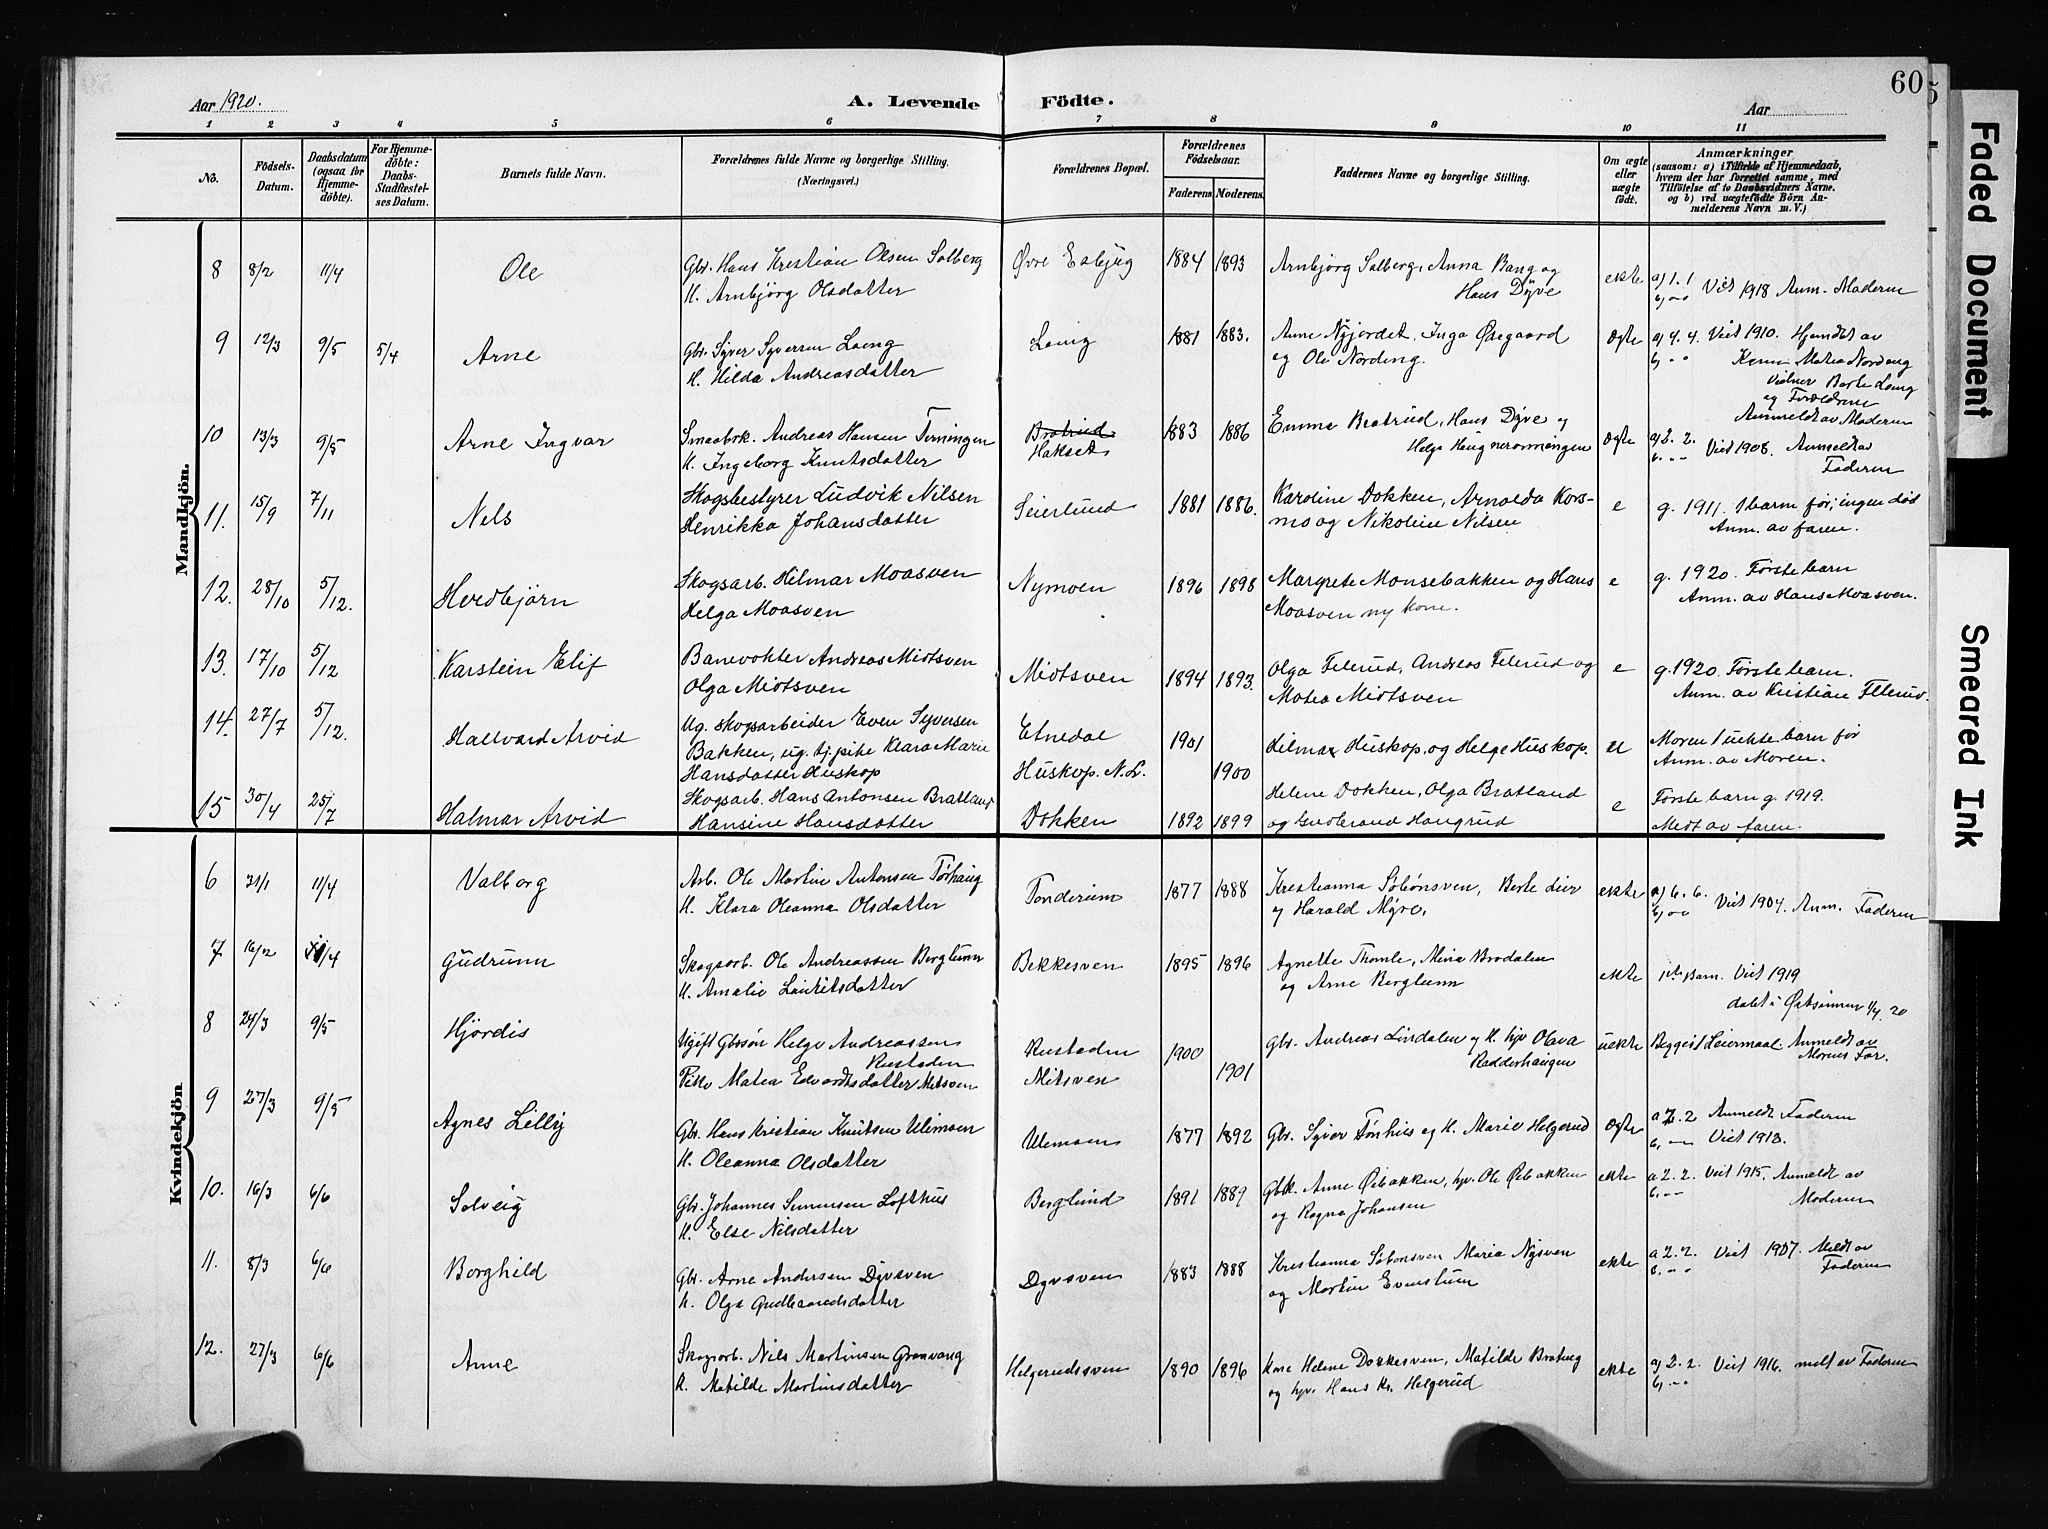 60
Aar 1920.
A. Levende Födte.
Aar
1 2 3 4 5 6 7 8 9 10 11
No.
Födsels-Datum.
Daabsdatum (ogsaa for Hjemmedöbte).
For Hjemmedöbte: Daabs-Stadfæstelses Datum.
Barnets fulde Navn.
Forældrenes fulde Navne og borgerlige Stilling.
(Næringsvei.)
Forældrenes Bopæl.
Forældrenes Födselsaar.
Faderens Moderens
Faddernes Navne og borgerlige Stilling.
Om ægte eller uægte födt.
Anmærkninger
(saasom: a) i Tilfælde af Hjemmedaab, hvem der har forrettet samme, med Tilföielse af to Daabsvidners Navne. og b) ved uægtefödte Börn Anmelderens Navn m. V.)
Mandkjön.
8 8/2 11/4 Ole Gbr. Hans Kristian Olsen Solberg Øvre 1884 1893 Arnbjörg Solberg, Anna Bang og ekte a) 1. 1
H. Arnbjörg Olsdatter Hans Dyve Viet 1918 Anm. Moderen
9 12/3 9/5 5/4 Arne Gbr. Syver Syversen 1881 1883. Anne Inga Ødegaard ogte a) 4. 4. Viet 1910. Hjemdøbt av
H. Hilda Andreasdatter og Ole Nordeng. Matea Nordeng
og Forældrene
Anmeldt av Moderen
10 13/3 9/5 Arne Ingvar Smaabrk. Andreas Hansen Bratrud 1883 1886 Emma Bratrud, Hans Dyve og ogte a) 2. 2.
H. Ingeborg Knutsdatter Helge Viet 1908. Anmeldt av
Faderen
11. 15/9 7/11 Nels Skogbestyrer Ludvik Nilsen Seierlund 1881 1886. Karoline Dokken, Arnolda Kors- e g. 1911. 1 barn før; ingen død
Henrikka Johansdatter mo og Nikoline Nilsen Anm. av faren.
12. 28/10 5/12. Herdbjörn Skogsarb. Hilmar Moasven Nymoen 1896 1898 Margrete Monsebakken og Hans e g. 1920. Første barn
Helga Moasven Moasven ny kone. Anm. av Hans Moasven.
13. 17/10 5/12 Karstein Elif Banevokter Andreas Midtsven Midtsven 1894 1893. Olga Fellerud, Andreas Fellerud og e g. 1920. Første barn.
Olga Midtsven Matea Midtsven Anm. av Kristian Fellerud.
14. 27/7 5/12. Hallvard Arvid Ug. skogsarbeider Even Syversen Etnedal 1901 Hilmar Huskop, og Helge Huskop. u Moren 1 uekte barn før
Bakken, ug. tj. pike Klara Marie Anm. av Moren.
Hansdatter Huskop Huskop. N. L. 1900
15 30/4 25/7 Halmar Arvid Skogsarb. Hans Antonsen Bratland Dokken 1892 1899 Helene Dokken, Olga Bratland e Første barn g. 1919.
Hansine Hansdatter og Gudbrand Haugrud Medt av faren.
Kvindekjön.
6 31/1 11/4 Valborg Arb. Ole Martin Antonsen 1877 1888 Kristianna Berte Lier ekte a) 6. 6.
H. Klara Oleanna Olsdatter og Harald Myre. Viet 1904. Anm. Faderen
7 16/2 /4 Gudrunn Skogsarb. Ole Andreassen Berglunn Bekkesven 1895 1896 Agnette Thomle, Mina Brodalen ekte 1ste Barn. Viet 1919
H. Amalie Lauritsdatter og Arne Berglunn
8 24/3 9/5 Hjördis Ugift Gbrsön Helge Andreassen Rustaden 1900 Gbr. Andreas Lindalen og H. hjv Olava uekte Begges 1 Leiermaal. Anmeldt av
Rustaden Mitsven 1901 Morens Far.
Pike Matea Edvardsdatter Mitsven
9 27/3 9/5 Agnes Lilly Gbr. Hans Kristian Knutsen Ulimoen Ulimoen 1877 1892 Gbr. Syver og H. Marie Helgerud ogte a 2. 2 Anmeldt Faderen
H. Oleanna Olsdatter Viet 1913.
10. 16/3 6/6 Solveig Gbr. Johannes Lofthus Berglund 1891 1889 Gbk. Anne Øibakken, hjv. Ole Øibakken ekte a 2. 2. Viet 1915. Anmeldt av
H. Else Nilsdatter og Ragna Johansen Moderen
11. 8/3 6/6 Borghild Gbr. Arne Andersen Dyvsven Dyvsven 1883 1888 Kristianna Maria Nysven ekte a 2. 2. Viet 1907. Meldt av
H. Olga Gudbrandsdatter og Martin Evenstuen Faderen
12. 27/3 6/6 Anne Skogsarb. Nils Martinsen Granvang Helgerudssven 1890 1896 Kone Helene Dokkesven, Matilde ekte a) 2. 2. Viet 1916. meldt av Faderen
H. Matilde Martinsdatter og hjv. Hans Kr. Helgerud
Faded Document
Smeared Ink